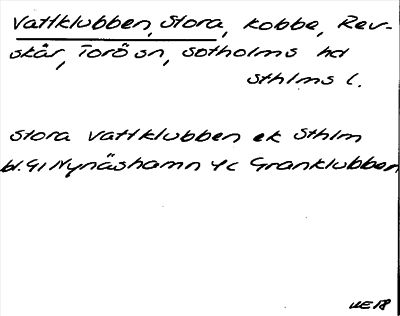 Vattklubben, Stora, kobbe, Rev-
skär, Torö sn, Sotholms hd
Sthlms l.
Stora Vattklubben ek Sthlm
bl. 91 Nynäshamn 4c Granklubben